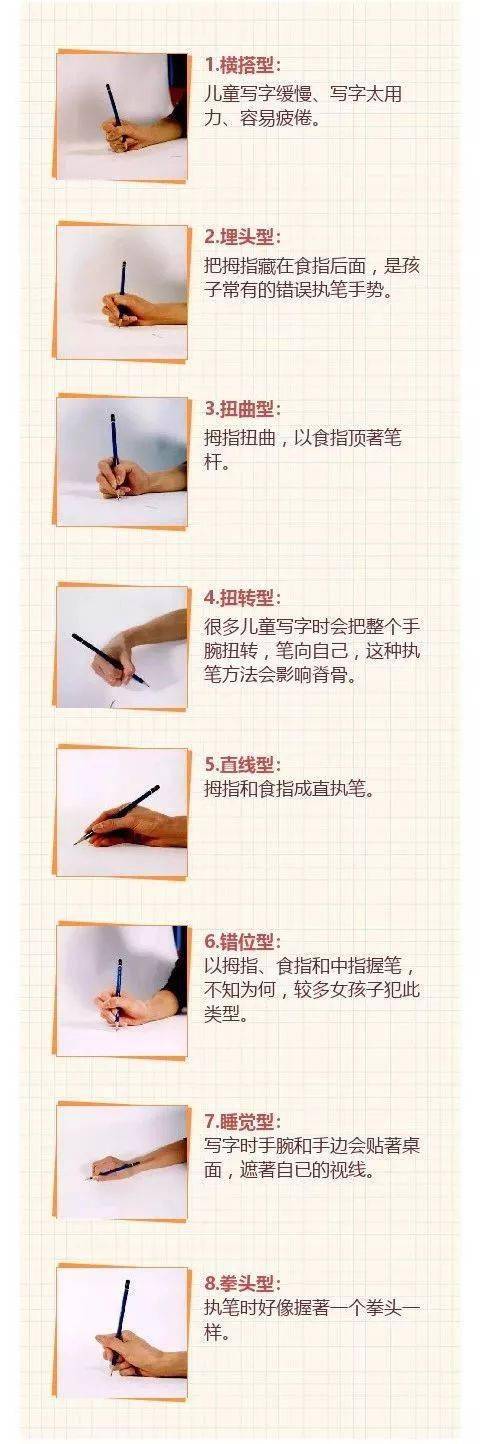 1.横搭型：
儿童写字缓慢、写字太用
力、容易疲倦。
2.埋头型：
把拇指藏在食指后面，是孩
子常有的错误执笔手势。
3.扭曲型：
拇指扭曲，以食指顶著笔
杆。
4.扭转型：
很多儿童写字时会把整个手
腕扭转，笔向自己，这种执
笔方法会影响脊骨。
5.直线型：
拇指和食指成直执笔。
6.错位型：
以拇指、食指和中指握笔，
不知为何，较多女孩子犯此
类型。
7.睡觉型：
写字时手腕和手边会贴著桌
面，遮著自已的视线。
8.拳头型：
执笔时好像握著一个拳头一
样。